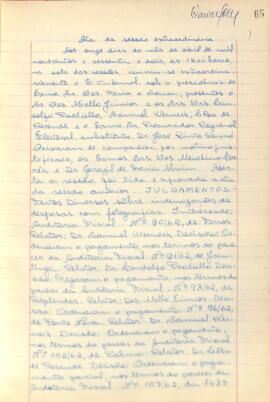 65
Ata da sessão extraordinária
Aos onze dias do mês de abril de mil
novecentos e sessenta e seis, às 18:00 horas,
na sala das sessões, reuniu-se extraordina-
riamente o Tribunal, sob a presidência do
Exmo. Sr. Des. Faria e Souza, presentes o
Sr. Des. Mello Júnior e os Srs. Drs. Lin-
dolfo Paoliello, Samuel Werneck,
Resende e o Exmo. Sr. Procurador Regional
Eleitoral, substituto, Dr. José
Deixaram de comparecer, por motivo jus-
tificado, os Exmos. Srs. Drs.
e Dr. de Faria Alvim.
ta a sessão, foi lida e aprovada a ata
da sessão anterior. JULGAMENTOS-
Feitos Diversos sobre indenizações de
despesas com fotografias. Interessado:
Auditoria Fiscal: Nº 90/62, de
Relator: Dr. Samuel Werneck. Decisão: Or-
denaram o pagamento, nos termos do pare-
cer da Auditoria Fiscal. Nº 91/62, de
Relator: Dr. Lindolfo Paoliello. Deci-
são: o pagamento, nos termos do
parecer da Auditoria Fiscal. Nº 93/62, de
Resplendor. Relator: Des. Mello Júnior. Deci-
são: Ordenaram o pagamento. Nº 96/62,
de Ponte Nova. Relator: Dr. Samuel Wer-
neck. Decisão: Ordenaram o pagamento,
nos termos do parecer da Auditoria Fiscal.
Nº 102/62, de Palma. Relator: Dr.
de Resende. Decisão: Ordenaram o paga-
mento parcial, nos termos do parecer da
Auditoria Fiscal. Nº 107/62, da 143ª